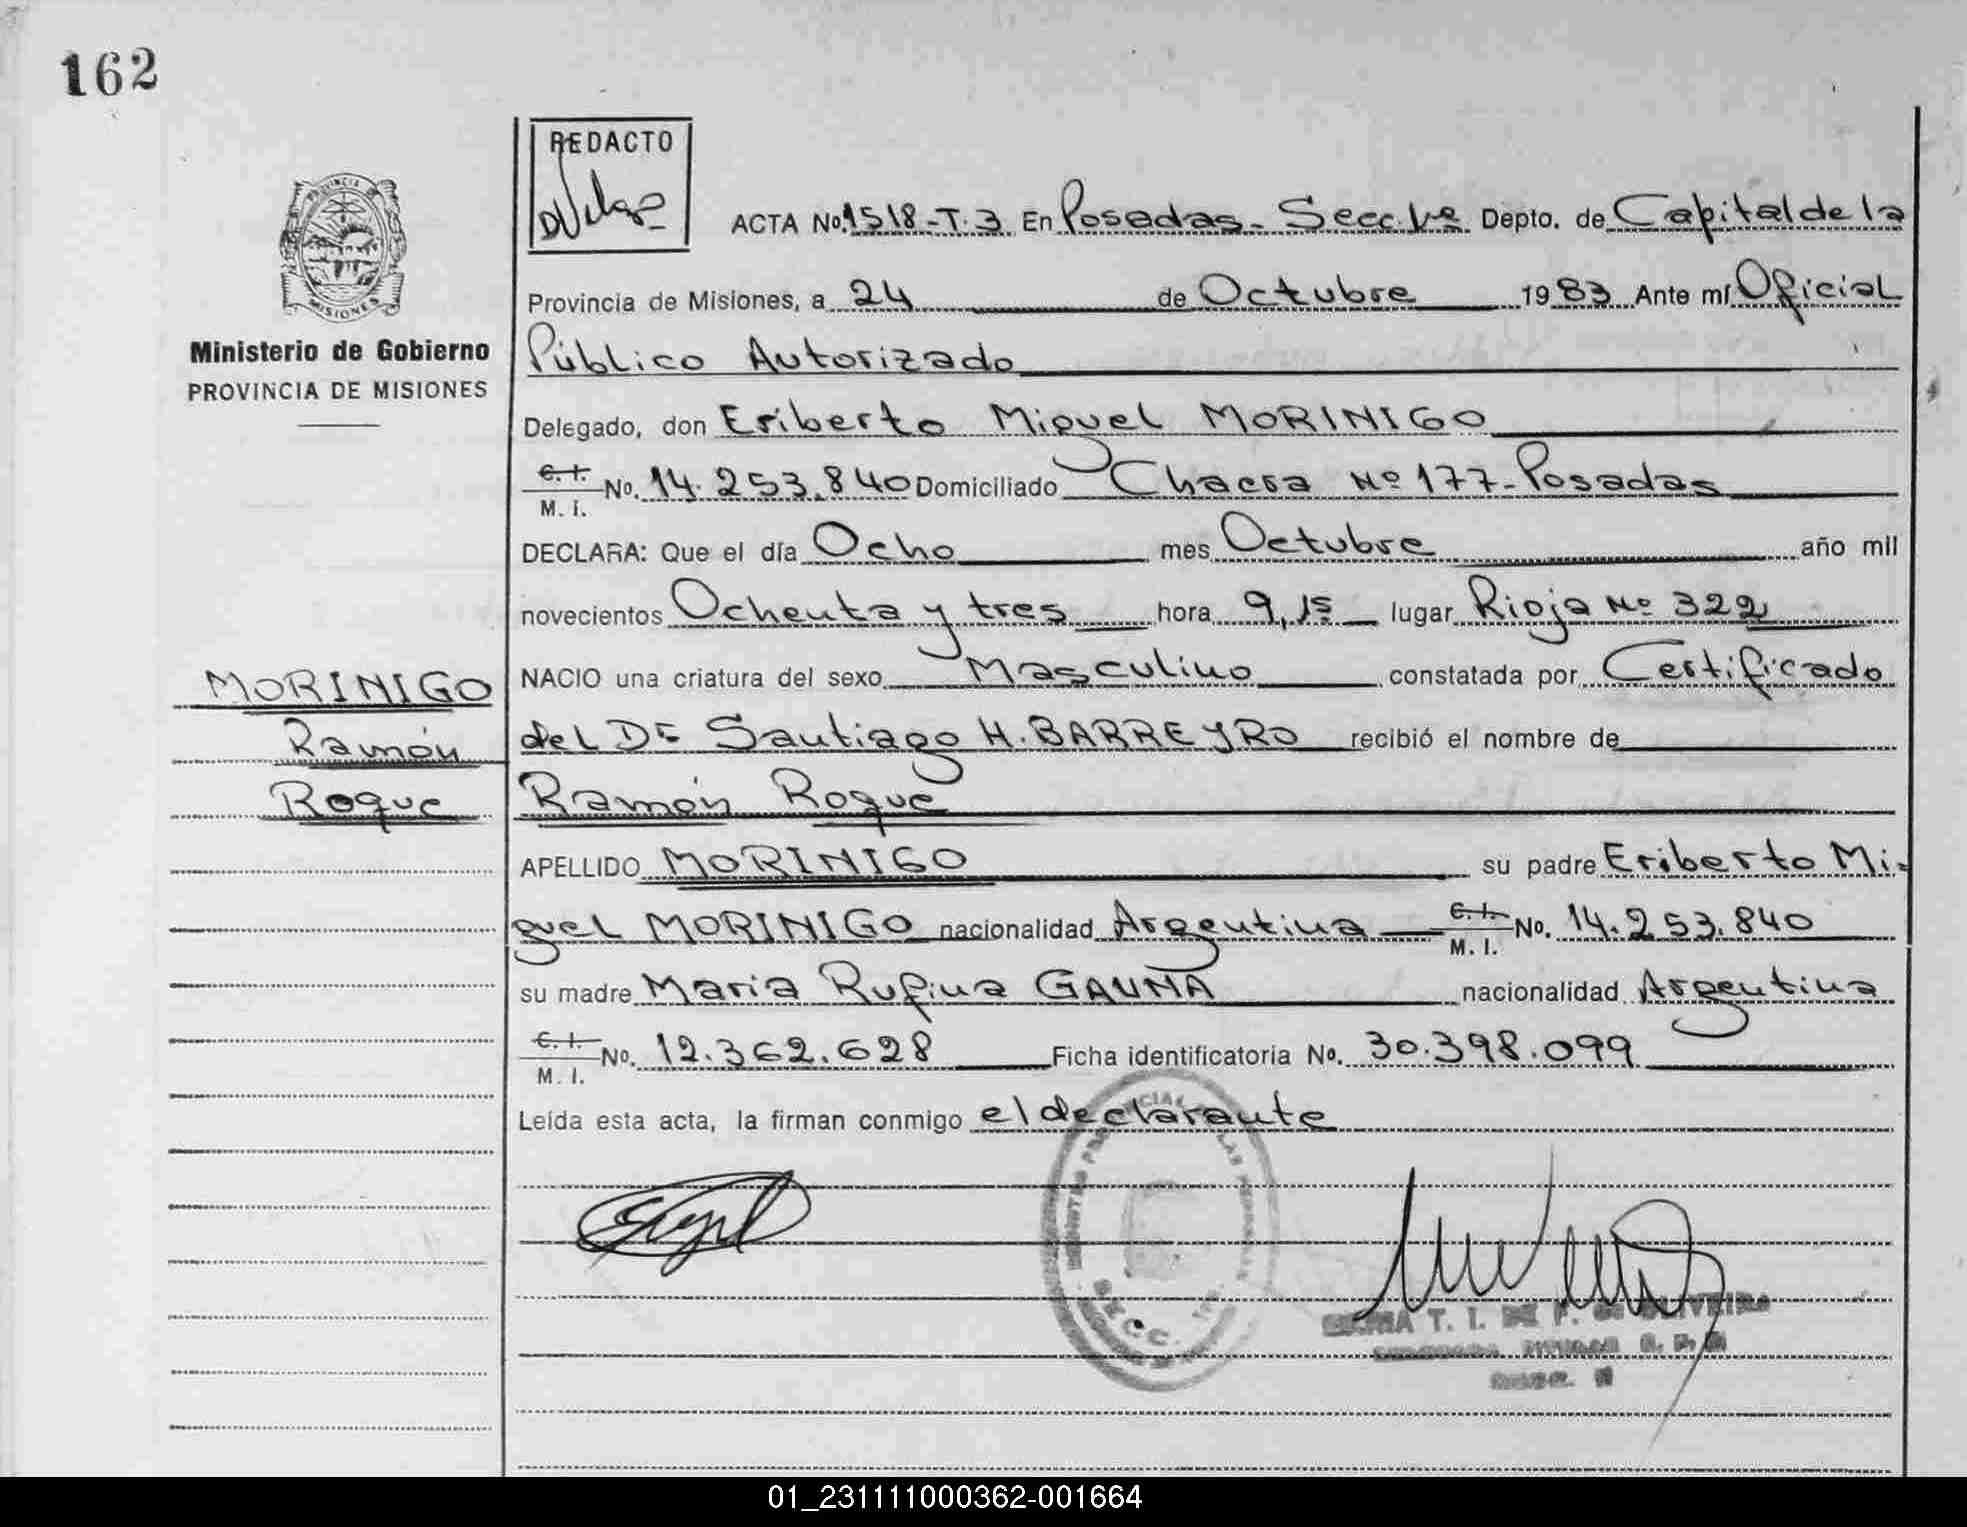 162
REDACTO
PROVINCIA DE
MISIONES
ACTA No. 1518-T.3 En Posadas - Secc. 1ra Depto. de Capital de la
Provincia de Misiones, a 24 de Octubre 1983 Ante mí Oficial
Ministerio de Gobierno
PROVINCIA DE MISIONES
Público Autorizado
Delegado, don Eriberto Miguel MORINIGO
C. I.
M. I.
No. 14.253.840 Domiciliado Chacra Nº 177 - Posadas
DECLARA: Que el día Ocho mes Octubre año mil
novecientos Ochenta y tres hora 9,15 lugar Rioja Nº 322
NACIO una criatura del sexo Masculino constatada por Certificado
MORINIGO
Ramón
Roque
del Dr Santiago H. BARREYRO recibió el nombre de
Ramón Roque
APELLIDO MORINIGO su padre Eriberto Mi-
guel MORINIGO nacionalidad Argentina C. I. No. 14.253.840
M. I.
su madre Maria Rufina GAUNA nacionalidad Argentina
C. I.
M. I.
No. 12.362.628 Ficha identificatoria No. 30.398.099
Leída esta acta, la firman conmigo el declarante
SECC. 1ra.
T. I. DE
01_231111000362-001664